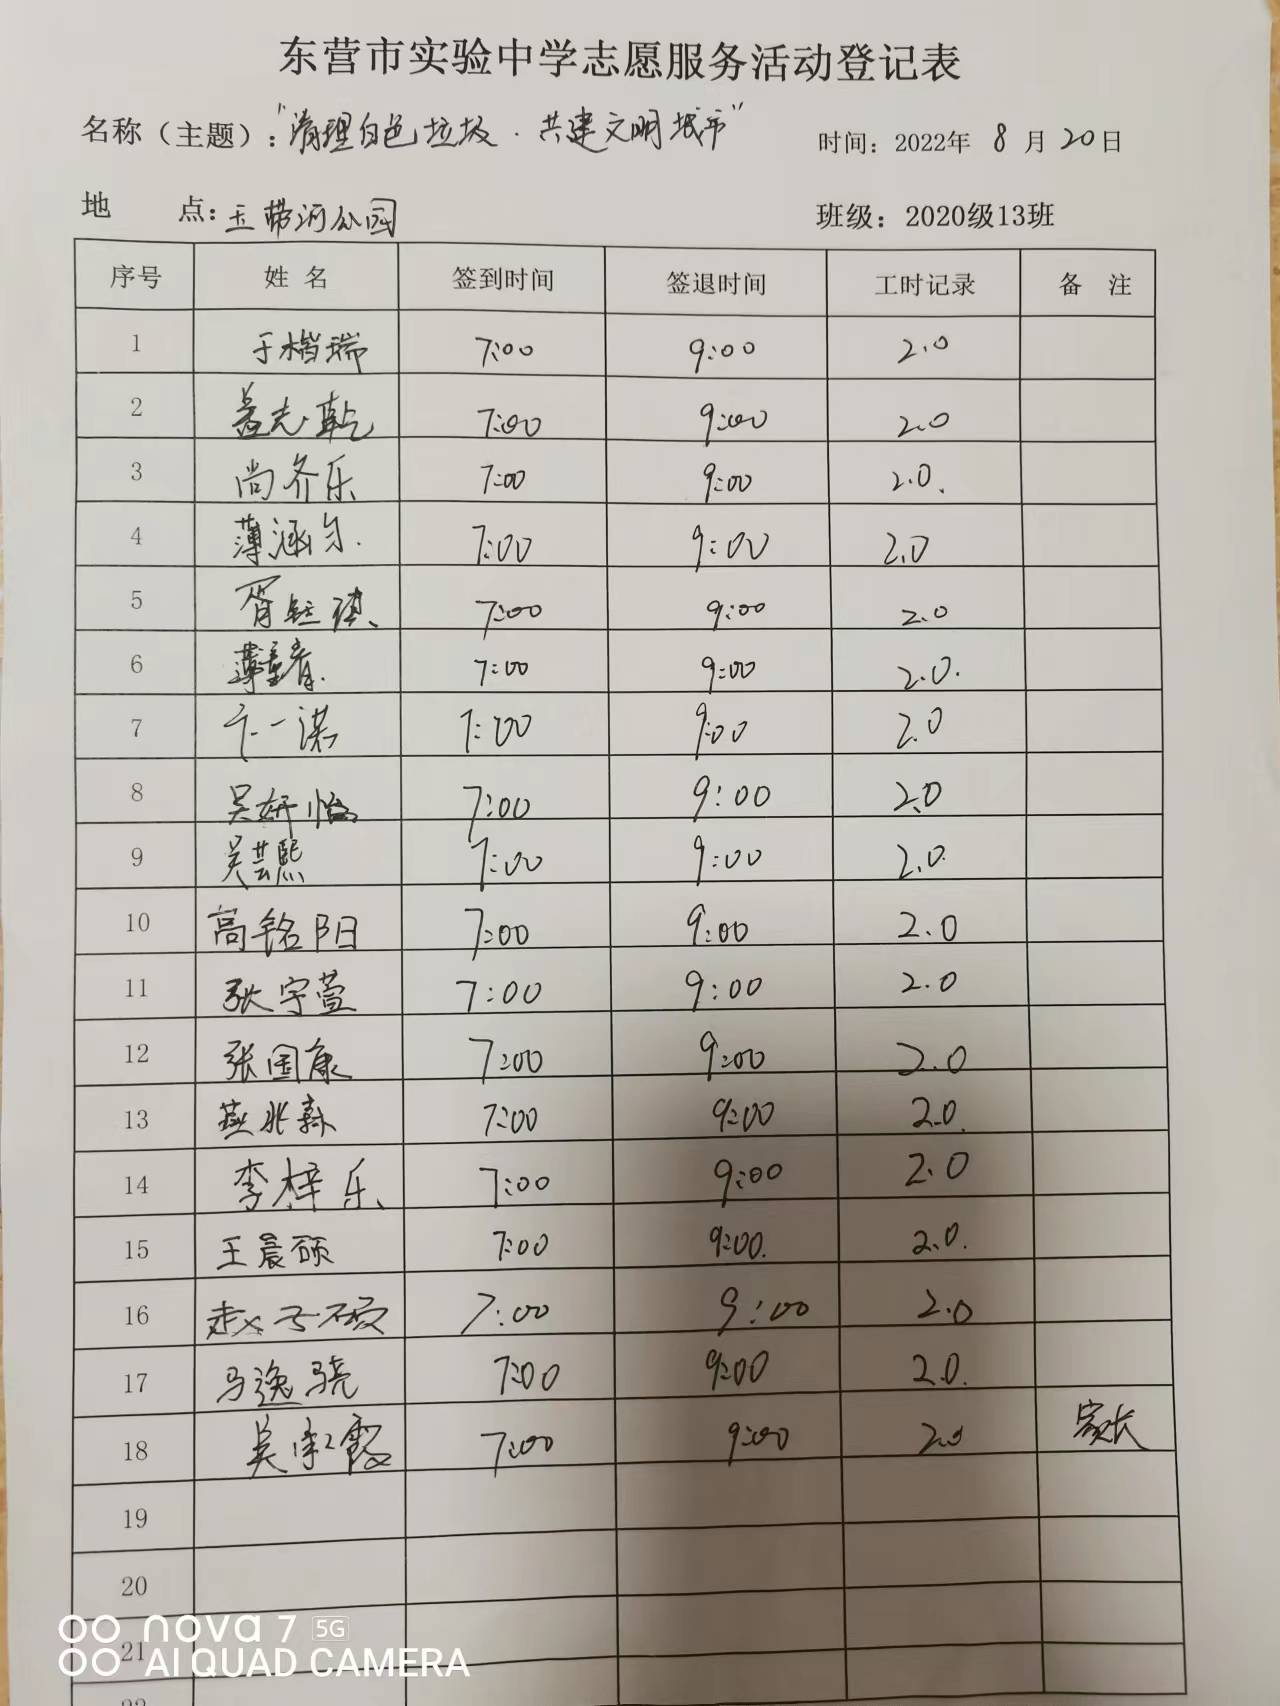 东营市实验中学志愿服务活动登记表
名称（主题）："清理白色垃圾．共建文明城市" 时间：2022年 8 月 20 日
地 点：玉带河公园 班级：2020级13班
序号 姓名 签到时间 签退时间 工时记录 备 注
1 于楷瑞 7:00 9:00 2.0
2 孟志乾 7:00 9:00 2.0
3 尚齐乐 7:00 9:00 2.0.
4 薄涵 7:00 9:00 2.0
5 胥钰琪 7:00 9:00 2.0
6 薄 7:00 9:00 2.0.
7 一諾 7:00 9:00 2.0
8 吴妍怡 7:00 9:00 2.0
9 吴芸熙 7:00 9:00 2.0.
10 高铭阳 7:00 9:00 2.0
11 张宇萱 7:00 9:00 2.0
12 张国康 7:00 9:00 2.0
13 燕兆 7:00 9:00 2.0.
14 李梓乐 7:00 9:00 2.0
15 王晨硕 7:00 9:00. 2.0.
16 赵子硕 7:00 9:00 2.0
17 马逸骁 7:00 9:00 2.0.
18 吴霞 7:00 9:00 2.0 家长
19
20
21
22
nova 7 5G
AI QUAD CAMERA